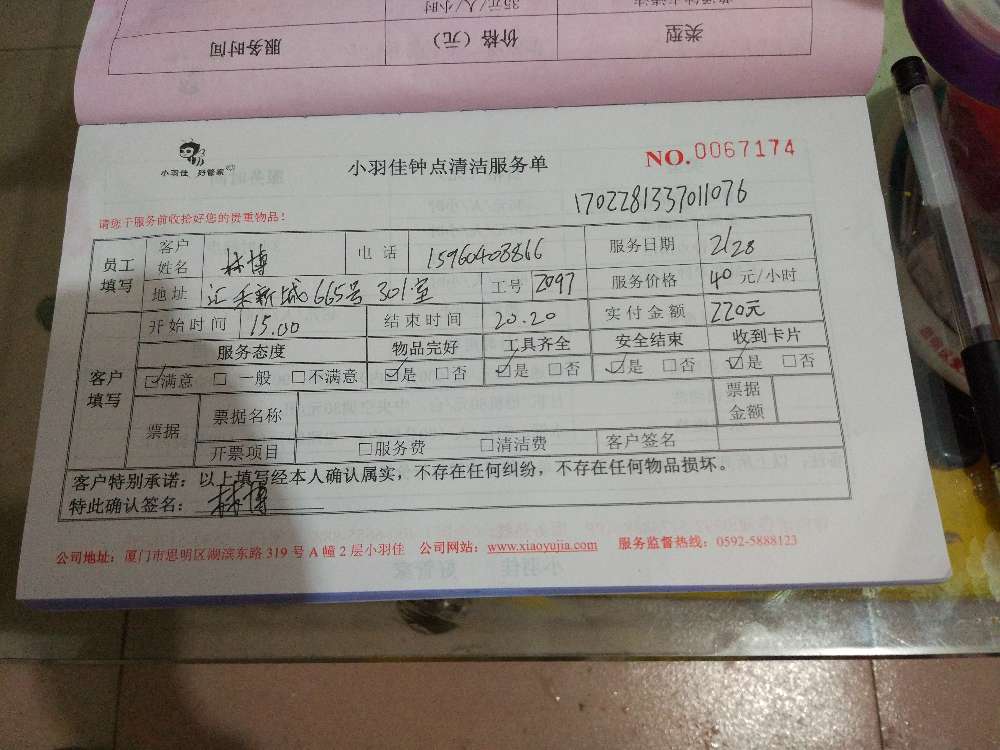 35元/人/小时
类型 价格（元） 服务时间
小羽佳 好管家
小羽佳钟点清洁服务单
NO.0067174
1702281337011076
请您于服务前收拾好您的贵重物品！
员工填写 客户姓名 林博 电话 15960408866 服务日期 2/28
地址 汇禾新城665号301室 工号 2097 服务价格 40元/小时
开始时间 15.00 结束时间 20.20 实付金额 220元
客户填写 服务态度 物品完好 工具齐全 安全结束 收到卡片
☑满意 □一般 □不满意 ☑是 □否 ☑是 □否 ☑是 □否 ☑是 □否
票据 票据名称 票据金额
开票项目 □服务费 □清洁费 客户签名
客户特别承诺：以上填写经本人确认属实，不存在任何纠纷，不存在任何物品损坏。
特此确认签名：林博
公司地址：厦门市思明区湖滨东路319号A幢2层小羽佳 公司网站：www.xiaoyujia.com 服务监督热线：0592-5888123